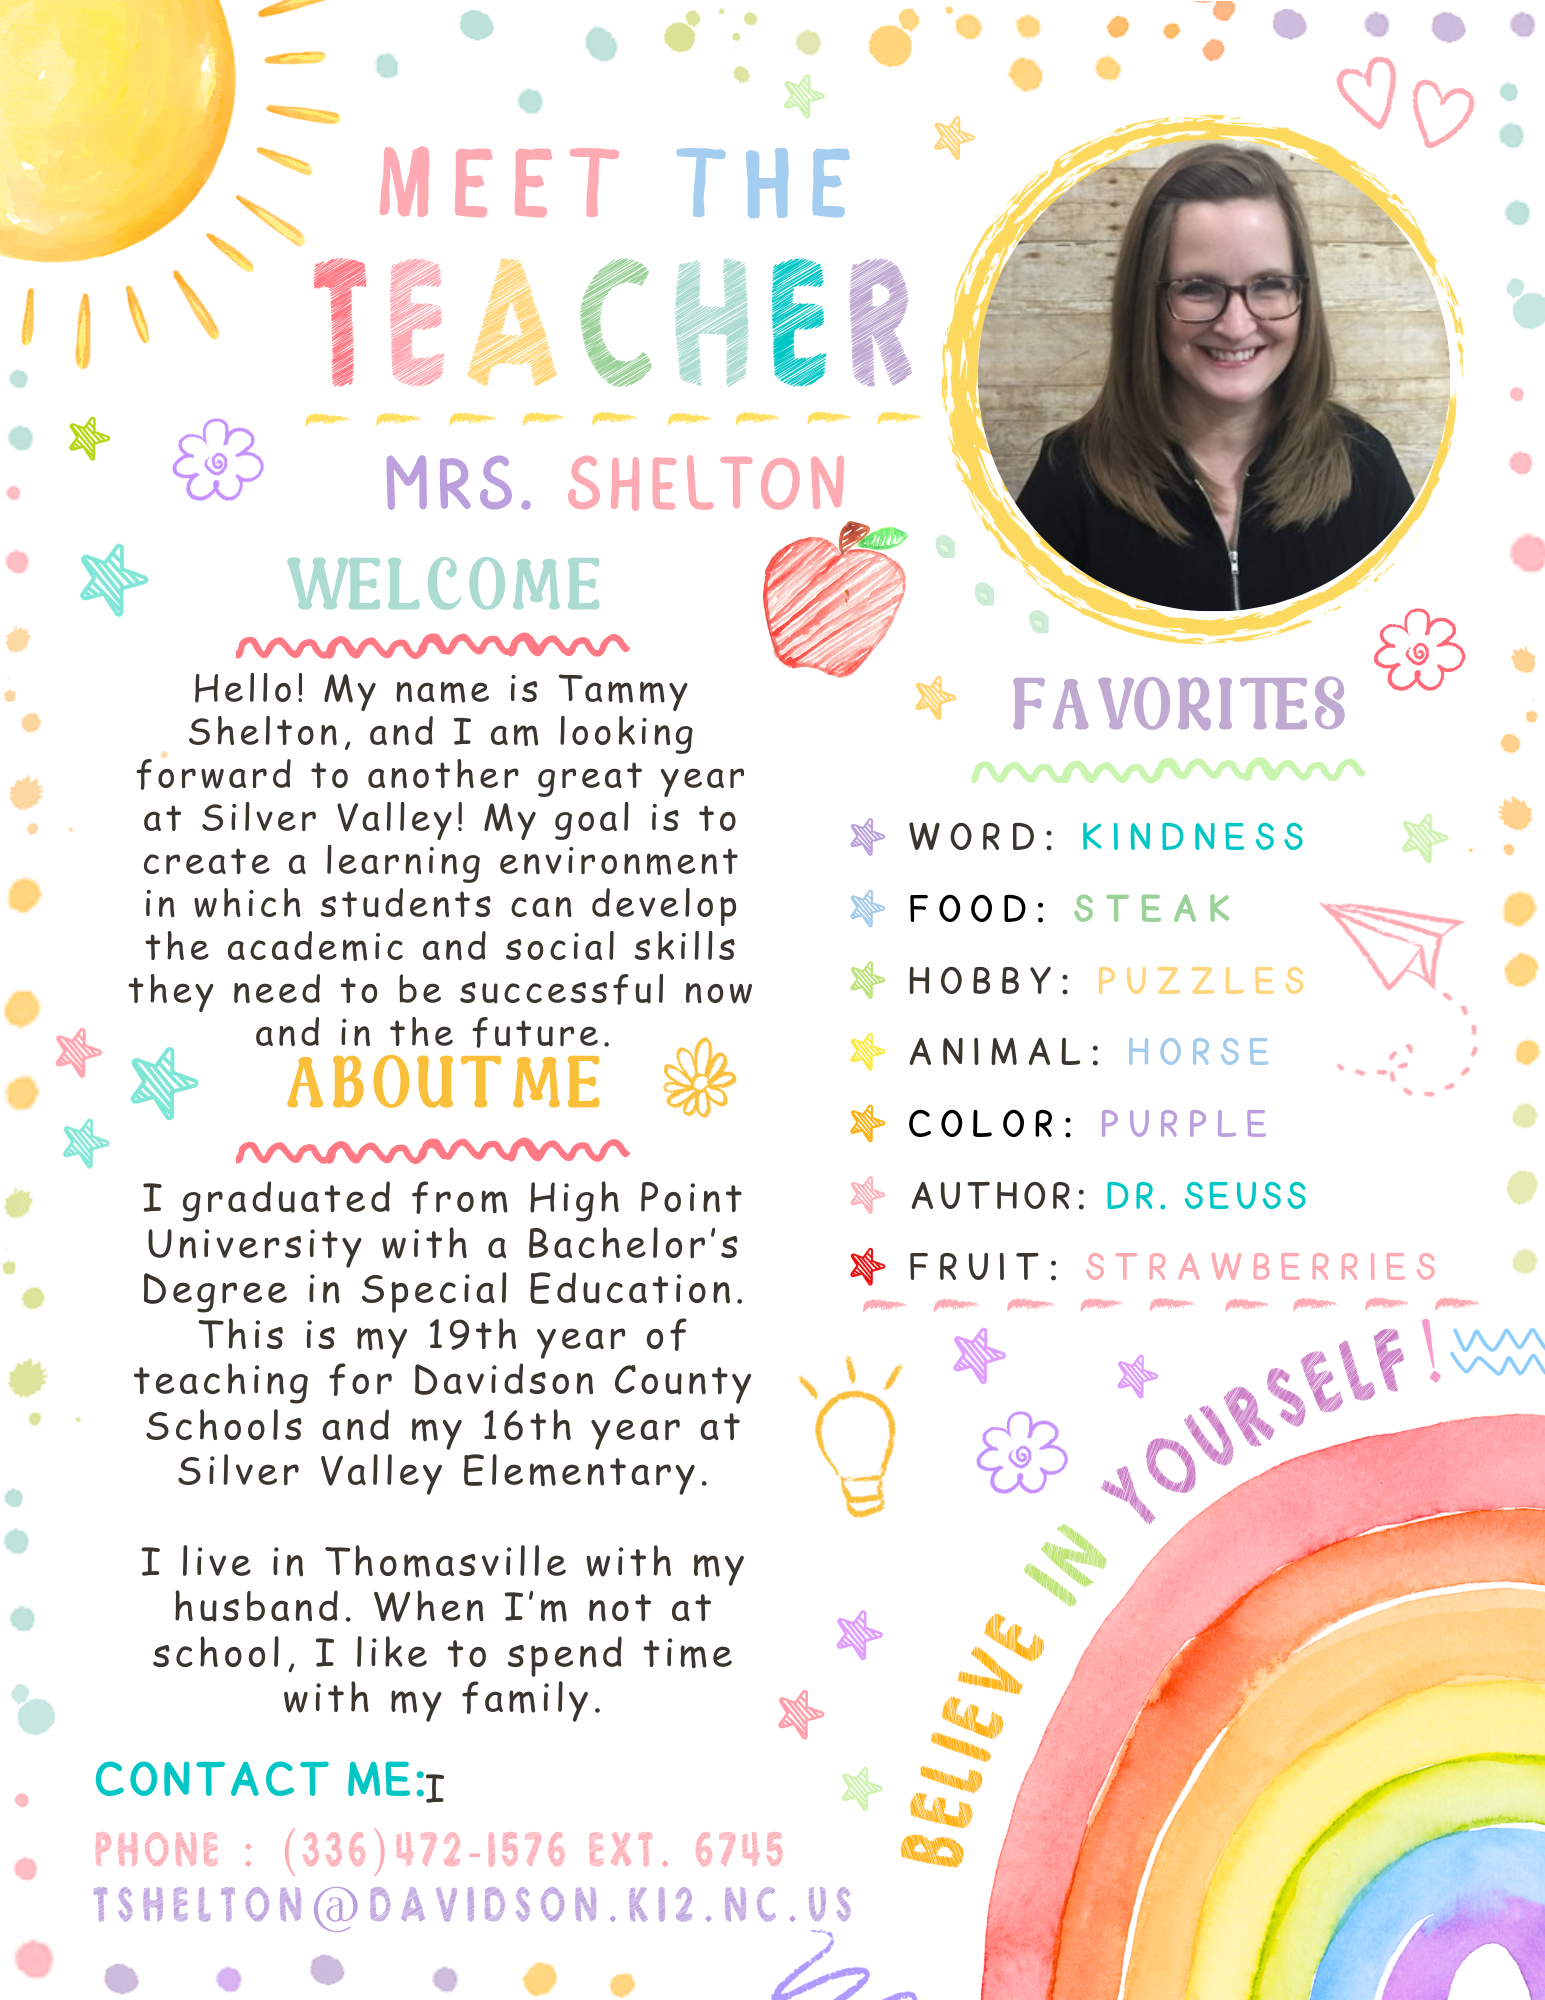 MEET THE
TEACHER
MRS. SHELTON
WELCOME
Hello! My name is Tammy
Shelton, and I am looking
forward to another great year
at Silver Valley! My goal is to
create a learning environment
in which students can develop
the academic and social skills
they need to be successful now
and in the future.
ABOUT ME
I graduated from High Point
University with a Bachelor's
Degree in Special Education.
This is my 19th year of
teaching for Davidson County
Schools and my 16th year at
Silver Valley Elementary.
I live in Thomasville with my
husband. When I'm not at
school, I like to spend time
with my family.
CONTACT ME:I
PHONE : (336)472-1576 EXT. 6745
TSHELTON@DAVIDSON.K12.NC.US
FAVORITES
WORD: KINDNESS
FOOD: STEAK
HOBBY: PUZZLES
ANIMAL: HORSE
COLOR: PURPLE
AUTHOR: DR. SEUSS
FRUIT: STRAWBERRIES
BELIEVE IN YOURSELF!